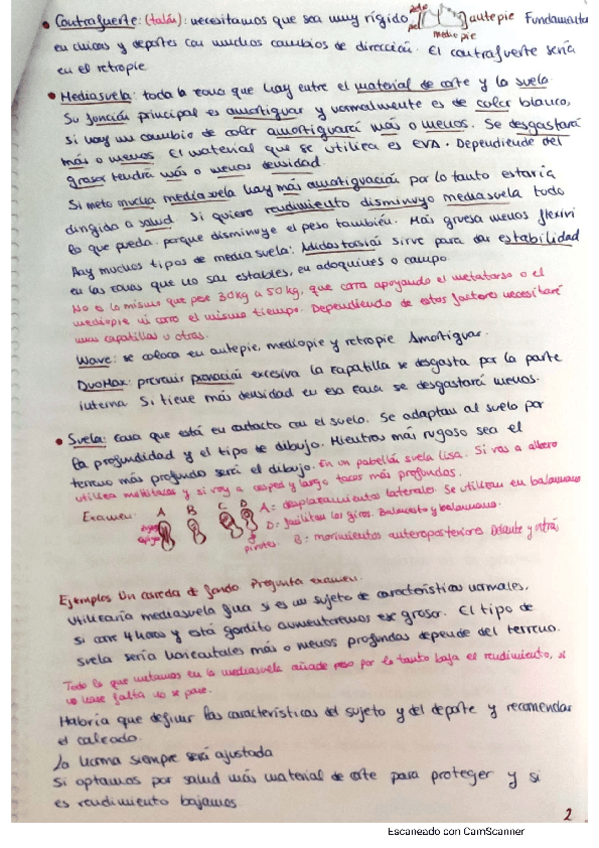 • Contrafuerte: (talón): necesitamos que sea muy rígido antepie Fundamental
medio pie
en chicas y deportes con muchos cambios de dirección. El contrafuerte sería
en el retropie
• Mediasuela: toda la zona que hay entre el material de corte y la suela.
Su función principal es amortiguar y normalmente es de color blanco,
si hay un cambio de color amortiguará más o menos. Se desgastará
más o menos. El material que se utiliza es EVA. Dependiende del
grosor tendrá más o menos densidad.
Si meto mucha mediasuela hay más amortiguación por lo tanto estaría
dirigida a salud. Si quiero rendimiento disminuyo mediasuela todo
lo que pueda. porque disminuye el peso también. Más gruesa menos flexivi
Hay muchos tipos de mediasuela: sirve para dar estabilidad
en las zonas que no son estables, en adoquines o campo.
No es lo mismo que pese 30kg a 50kg, que corra apoyando el metatarso o el
mediopie ni corro el mismo tiempo. Dependiendo de estos factores necesitaré
unas zapatillas u otras.
Wave: se coloca en antepie, mediopie y retropie Amortiguar.
DuoMax: prevenir pronación excesiva la zapatilla se desgasta por la parte
interna Si tiene más densidad en esa zona se desgastará menos.
• Suela: zona que está en contacto con el suelo. Se adaptan al suelo por
la profundidad y el tipo de dibujo. Mientras más rugoso sea el
terreno más profundo será el dibujo. En un pabellón suela lisa. Si vas a albero
utiliza multitacos y si voy a cesped y largo tacos más profundos.
Examen: A B C D A: desplazamientos laterales. Se utilizan en balonmano
D: facilitan los giros. Baloncesto y balonmano.
pivotes B: movimientos anteroposteriores Delante y atrás
Ejemplos Un carrera de fondo Pregunta examen.
Utilizaría mediasuela fina si es un sujeto de características normales,
si corre 4 horas y está gordito aumentaremos ese grosor. El tipo de
suela sería horizontales más o menos profundas depende del terreno.
Todo lo que metamos en la mediasuela añade peso por lo tanto baja el rendimiento, si
no hace falta no se pone.
Habría que definir las características del sujeto y del deporte y recomendar
el calzado.
La horma siempre será ajustada
Si optamos por salud más material de corte para proteger y si
es rendimiento bajamos
2
Escaneado con CamScanner